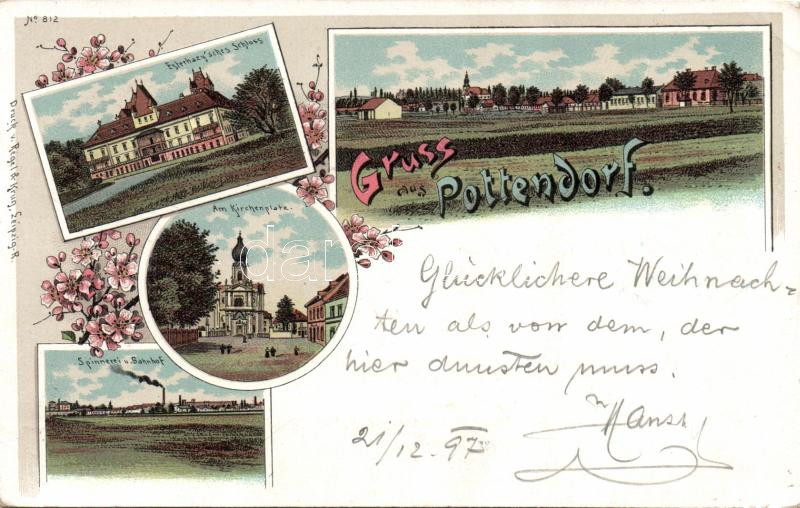 No 812
Esterhazy'sches Schloss
Gruss
aus
Pottendorf.
Am Kirchenplatz.
Spinnerei u. Bahnhof
Druck v. Regel & Krug, Leipzig-R.
Glücklichere Weihnach-
ten als von dem, der
hier dunsten muss.
Hansl
21/12. 97